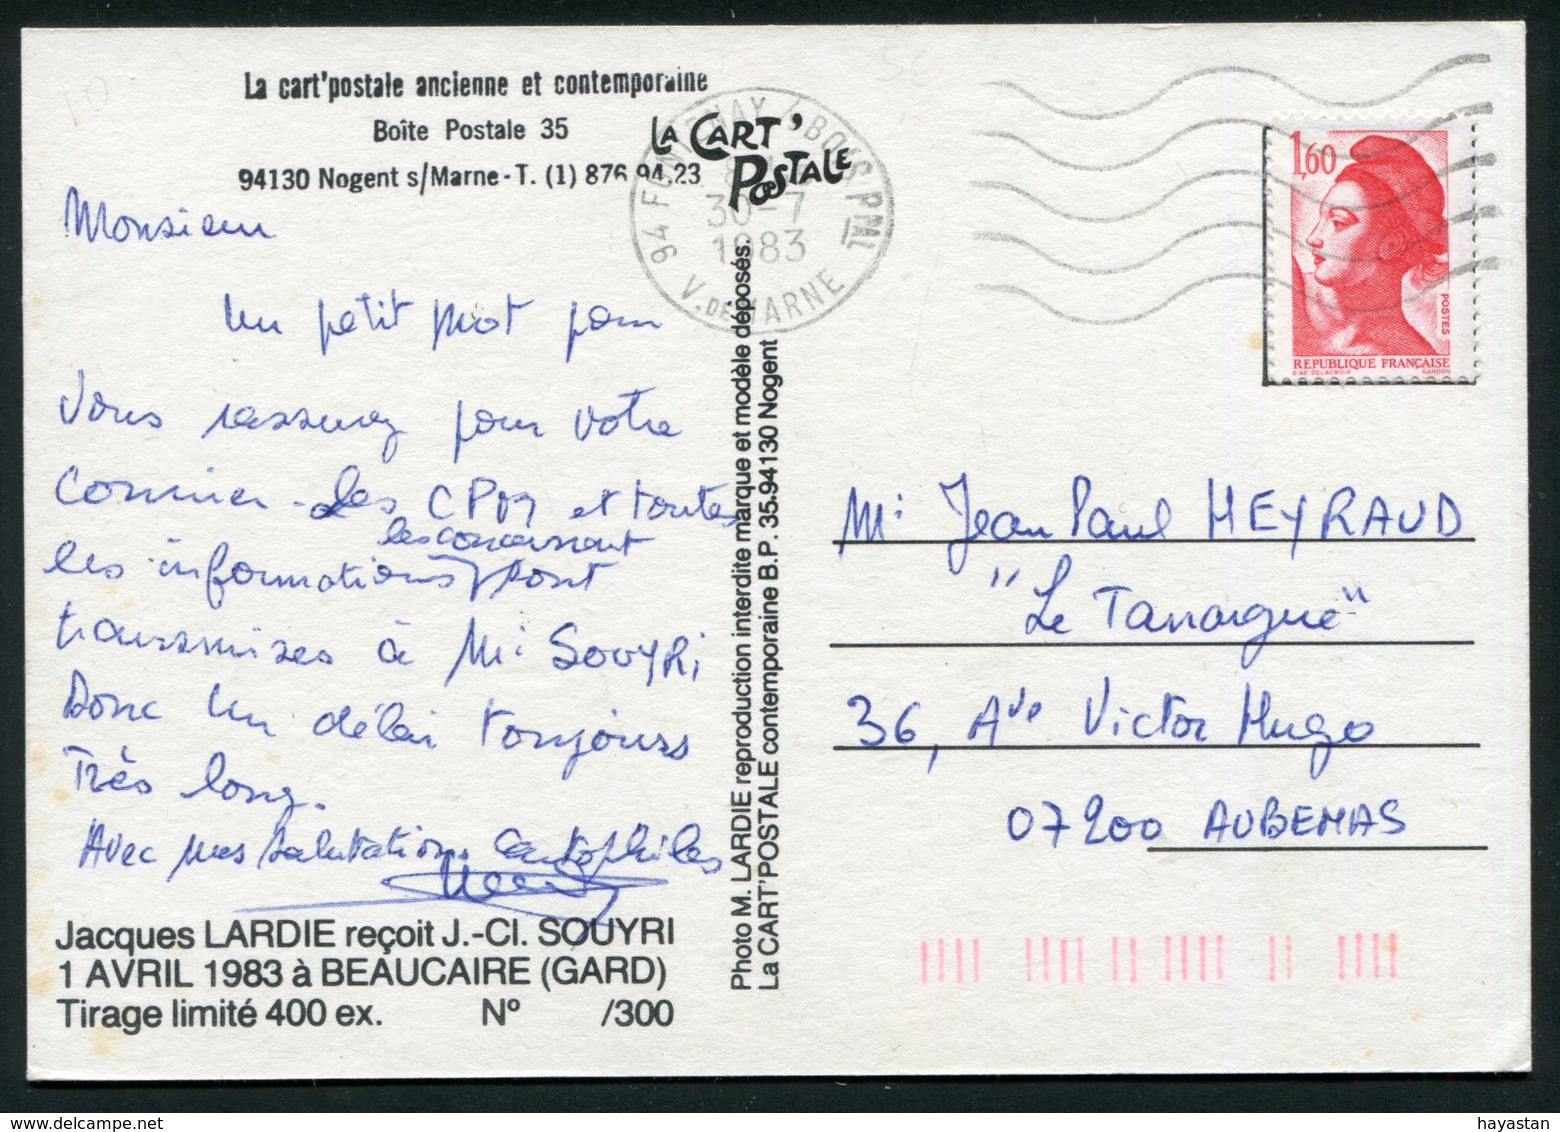 La cart'postale ancienne et contemporaine
Boîte Postale 35
94130 Nogent s/Marne - T. (1) 876.94.23
LA CART'
POSTALE
94 FONTENAY S BOIS PPAL
30-7
1983
V. DE MARNE
1,60
POSTES
REPUBLIQUE FRANÇAISE
D'AP. DELACROIX GANDON
Monsieur
Un petit mot pour
vous rassurer pour votre
courrier - Les CP et toutes
les informations les concernant sont
transmises à Mr SOUYRI
Donc un délai toujours
Très long.
Avec mes salutations Cartophiles
Jacques LARDIE reçoit J.-Cl. SOUYRI
1 AVRIL 1983 à BEAUCAIRE (GARD)
Tirage limité 400 ex. Nº /300
Photo M. LARDIE reproduction interdite marque et modèle déposés.
La CART'POSTALE contemporaine B.P. 35.94130 Nogent
Mr Jean Paul HEYRAUD
"Le Tanargue"
36, Ave Victor Hugo
07200 AUBENAS
hayastan